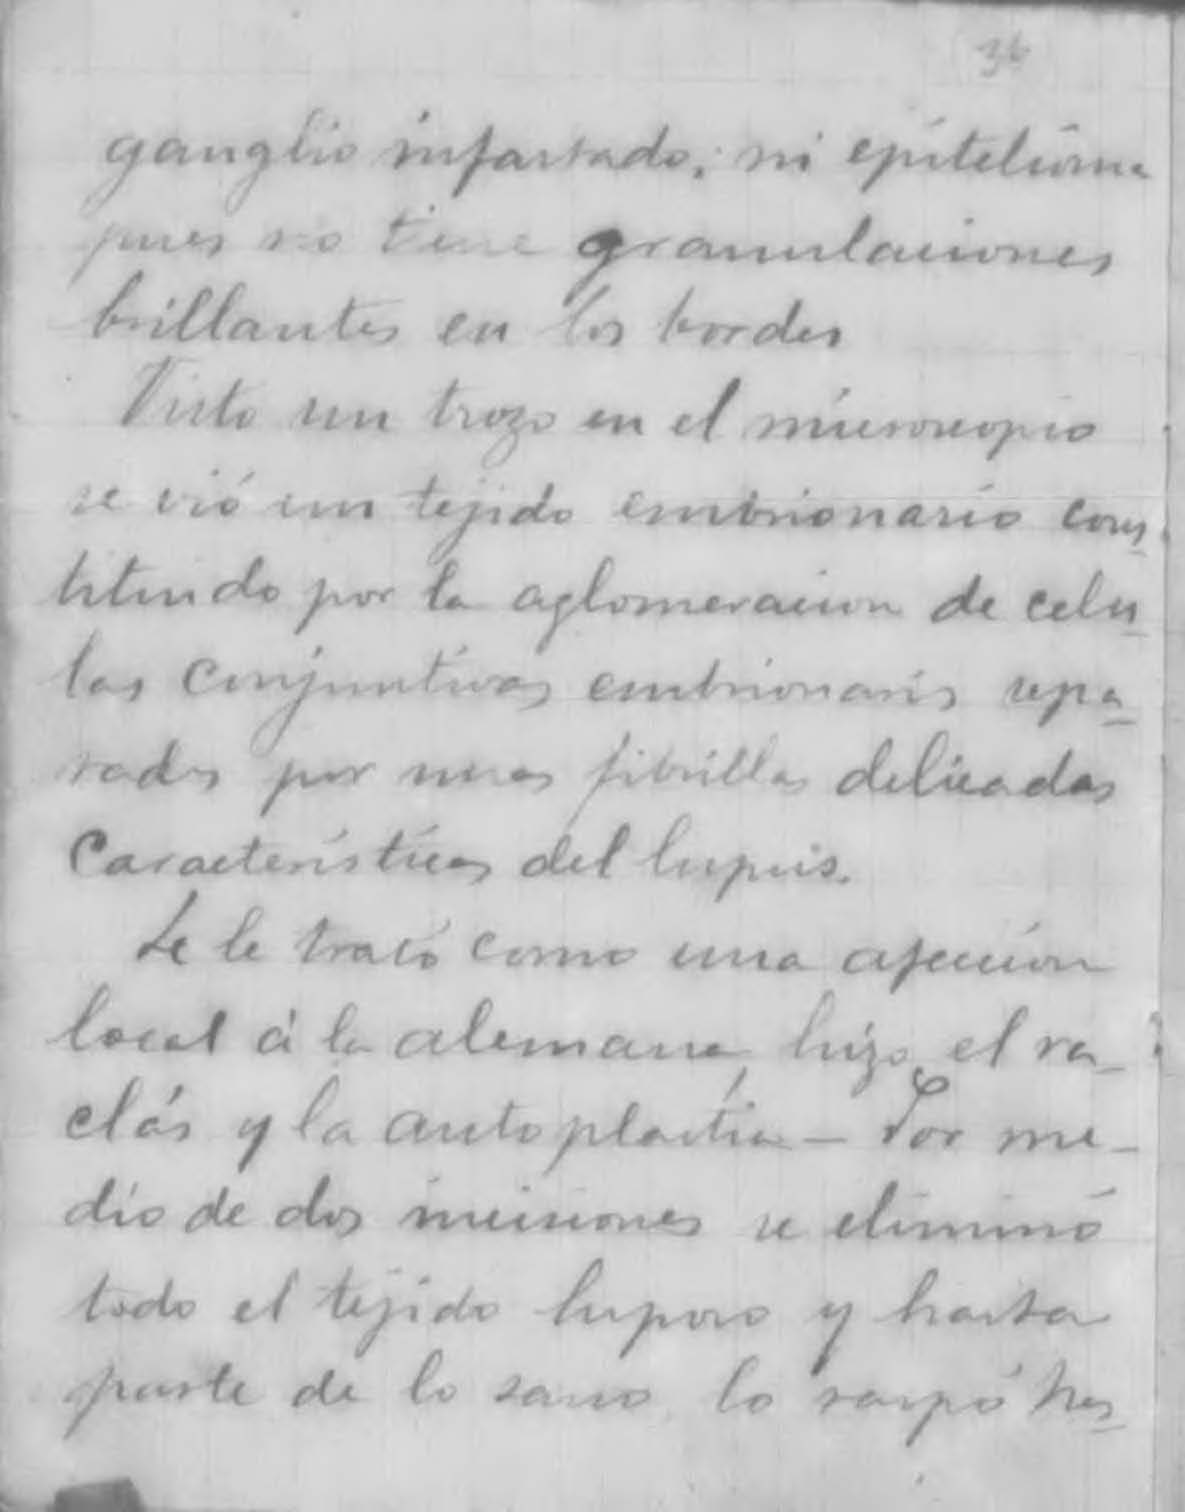 36
ganglio infartado; ni epitelioma
pues no tiene granulaciones
brillantes en los bordes
Visto un trozo en el microscopio
se vió un tejido embrionario cons_
tituido por la aglomeracion de celu_
las conjuntivas embrionarias sepa_
radas por unas fibrillas delicadas
caracteristicas del lupus.
Se le trató como una afeccion
local á la alemana, hizo el ra_
clás y la autoplastia — Por me_
dio de dos incisiones se eliminó
todo el tejido luposo y hasta
parte de lo sano lo raspó has_